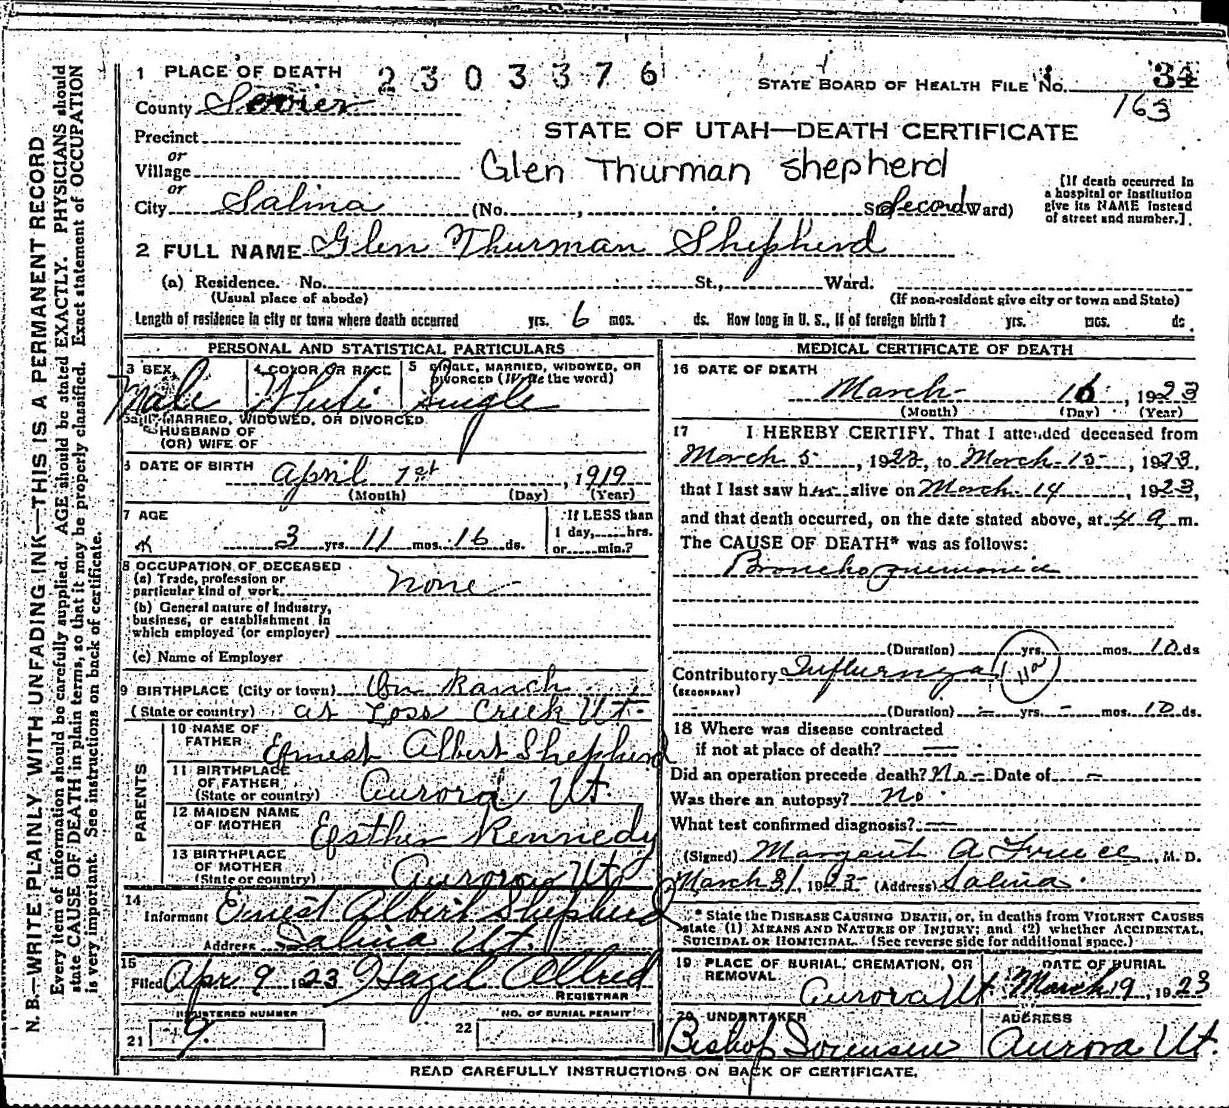 1 PLACE OF DEATH 2303376 STATE BOARD OF HEALTH FILE NO. 34
County Sevier 163
STATE OF UTAH—DEATH CERTIFICATE
Precinct
or
Village Glen Thurman Shepherd
or
City Salina (No. , St. Second Ward)
[If death occurred in a hospital or institution give its NAME instead of street and number.]
2 FULL NAME Glen Thurman Shepherd
(a) Residence. No. St., Ward.
(Usual place of abode) (If non-resident give city or town and State)
Length of residence in city or town where death occurred yrs. 6 mos. ds. How long in U. S., if of foreign birth? yrs. mos. ds.
PERSONAL AND STATISTICAL PARTICULARS
3 SEX 4 COLOR OR RACE 5 SINGLE, MARRIED, WIDOWED, OR DIVORCED (Write the word)
Male White Single
MARRIED, WIDOWED, OR DIVORCED
HUSBAND OF
(OR) WIFE OF
6 DATE OF BIRTH April 1st, 1919
(Month) (Day) (Year)
7 AGE 3 yrs. 11 mos. 16 ds.
If LESS than
1 day, hrs.
or min.?
8 OCCUPATION OF DECEASED
(a) Trade, profession or particular kind of work none
(b) General nature of industry,
business, or establishment in
which employed (or employer)
(c) Name of Employer
9 BIRTHPLACE (City or town) On Ranch
(State or country) at Loss Creek Ut.
PARENTS
10 NAME OF FATHER Ernest Albert Shepherd
11 BIRTHPLACE OF FATHER (State or country) Aurora Ut
12 MAIDEN NAME OF MOTHER Epsther Kennedy
13 BIRTHPLACE OF MOTHER (State or country) Aurora Ut
14 Informant Ernest Albert Shepherd
Address Salina Ut.
15 Filed Apr 9 1923 Hazel Allred
REGISTRAR
REGISTERED NUMBER NO. OF BURIAL PERMIT
21 9. 22
MEDICAL CERTIFICATE OF DEATH
16 DATE OF DEATH
March 16, 1923
(Month) (Day) (Year)
17 I HEREBY CERTIFY, That I attended deceased from
March 5, 1923, to March 15, 1923,
that I last saw h alive on March 14, 1923,
and that death occurred, on the date stated above, at 4 a m.
The CAUSE OF DEATH* was as follows:
Broncho pneumonia
(Duration) yrs. mos. 10 ds
Contributory Influenza 11a
(SECONDARY)
(Duration) — yrs. - mos. 10 ds.
18 Where was disease contracted
if not at place of death? —
Did an operation precede death? No - Date of —
Was there an autopsy? no
What test confirmed diagnosis? —
(Signed) Margaret A Freece, M. D.
March 31, 1923 (Address) Salina.
* State the DISEASE CAUSING DEATH, or, in deaths from VIOLENT CAUSES
state (1) MEANS AND NATURE OF INJURY; and (2) whether ACCIDENTAL,
SUICIDAL OR HOMICIDAL. (See reverse side for additional space.)
19 PLACE OF BURIAL, CREMATION, OR REMOVAL DATE OF BURIAL
Aurora Ut March 19, 1923
20 UNDERTAKER ADDRESS
Bishop Sorensen Aurora Ut.
READ CAREFULLY INSTRUCTIONS ON BACK OF CERTIFICATE.
N. B.—WRITE PLAINLY WITH UNFADING INK—THIS IS A PERMANENT RECORD
Every item of information should be carefully supplied. AGE should be stated EXACTLY. PHYSICIANS should
state CAUSE OF DEATH in plain terms, so that it may be properly classified. Exact statement of OCCUPATION
is very important. See instructions on back of certificate.